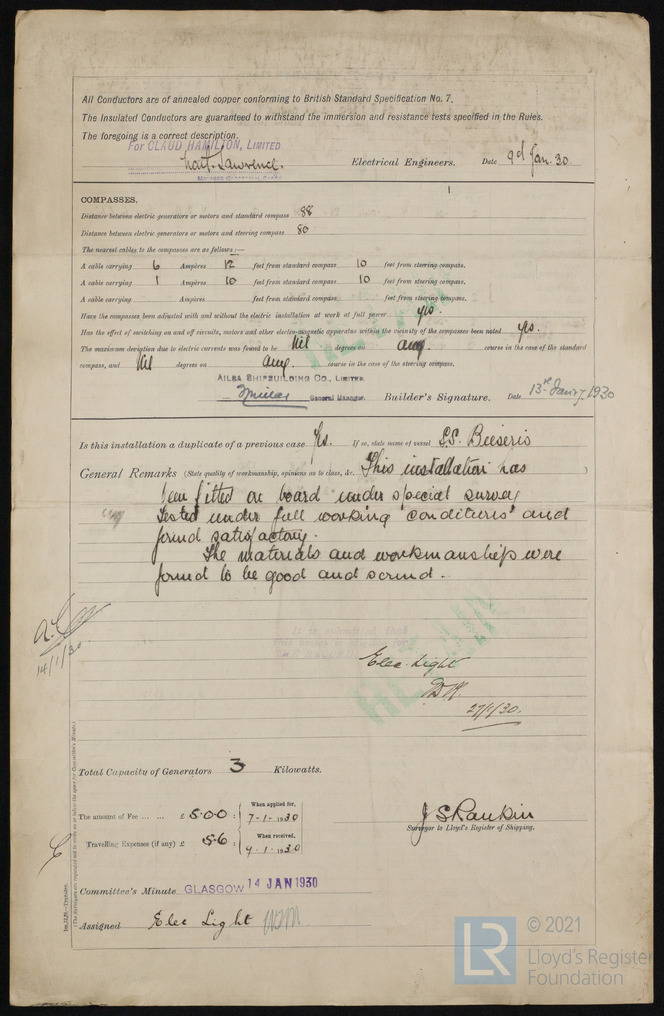 All Conductors are of annealed copper conforming to British Standard Specification No. 7.
The Insulated Conductors are guaranteed to withstand the immersion and resistance tests specified in the Rules.
The foregoing is a correct description.
For CLAUD HAMILTON, LIMITED
Lawrence. Electrical Engineers. Date 9d Jan. 30
COMPASSES.
Distance between electric generators or motors and standard compass 88
Distance between electric generators or motors and steering compass 80
The nearest cables to the compasses are as follows:—
A cable carrying 6 Ampères 12 feet from standard compass 10 feet from steering compass.
A cable carrying 1 Ampères 10 feet from standard compass 10 feet from steering compass.
A cable carrying Ampères feet from standard compass feet from steering compass.
Have the compasses been adjusted with and without the electric installation at work at full power yes.
Has the effect of switching on and off circuits, motors and other electro-magnetic apparatus within the vicinity of the compasses been noted yes.
The maximum deviation due to electric currents was found to be Nil degrees on any course in the case of the standard
compass, and Nil degrees on any. course in the case of the steering compass.
AILSA SHIPBUILDING CO., LIMITED.
General Manager. Builder's Signature. Date 13th Jany 1930
Is this installation a duplicate of a previous case Yes. If so, state name of vessel S.S.
General Remarks (State quality of workmanship, opinions as to class, &c. This installation has
been fitted on board under special survey
Tested under full working conditions and
found satisfactory.
The materials and workmanship were
found to be good and sound.
14/1/30
RETAIN
Elec. Light
27/1/30.
Total Capacity of Generators 3 Kilowatts.
The amount of Fee ... ... £ 5:0:0 : When applied for, 7-1-1930
Travelling Expenses (if any) £ 5.6 : When received, 9-1-1930
J S Rankin
Surveyor to Lloyd's Register of Shipping.
Committee's Minute GLASGOW 14 JAN 1930
Assigned Elec Light
© 2021
LR
Lloyd's Register
Foundation